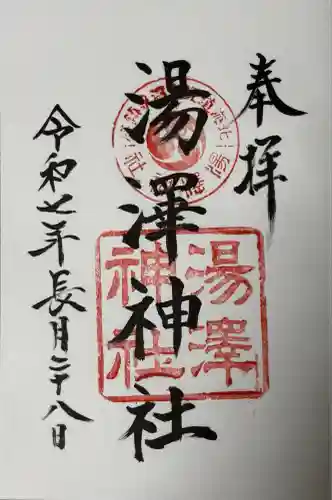 奉拝
湯澤神社
令和七年長月二十八日
湯澤
神社